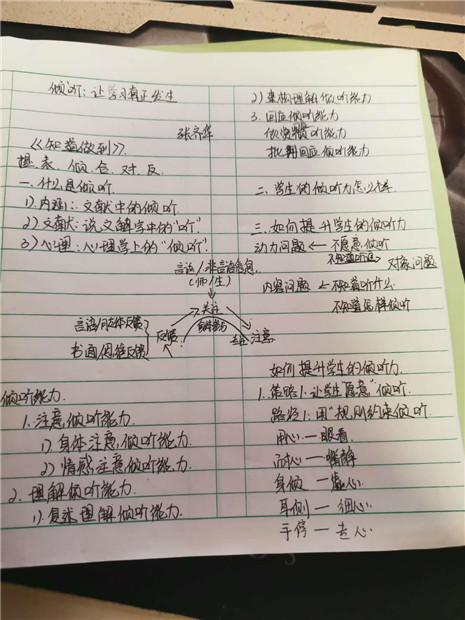 倾听:让学习真正发生
张齐华
《知道做到》
想、表、倾、合、对、反
一、什么是倾听
1)内涵:文献中的倾听
2)文献:说文解字中的"听"
3)心理:心理学上的"倾听"
言语/非言语信息
(师/生)
关注
言语/肢体反馈
书面/思维反馈
反馈
注意
倾听能力
1.注意倾听能力
1)身体注意倾听能力
2)情感注意倾听能力
2.理解倾听能力
1)复述理解倾听能力
2)重构理解倾听能力
3.回应倾听能力
批判回应倾听能力
二、学生的倾听力怎么样
三、如何提升学生的倾听力
动力问题 ← 不愿意倾听
不知道听谁 → 对象问题
内容问题 ← 不知道听什么
不知道怎样倾听
如何提升学生的倾听力
1.策略1:让学生"愿意"倾听
路径1:用"规则约束倾听
用心—眼看
而心—情静
身倾—虚心
耳侧—细心
手停—走心